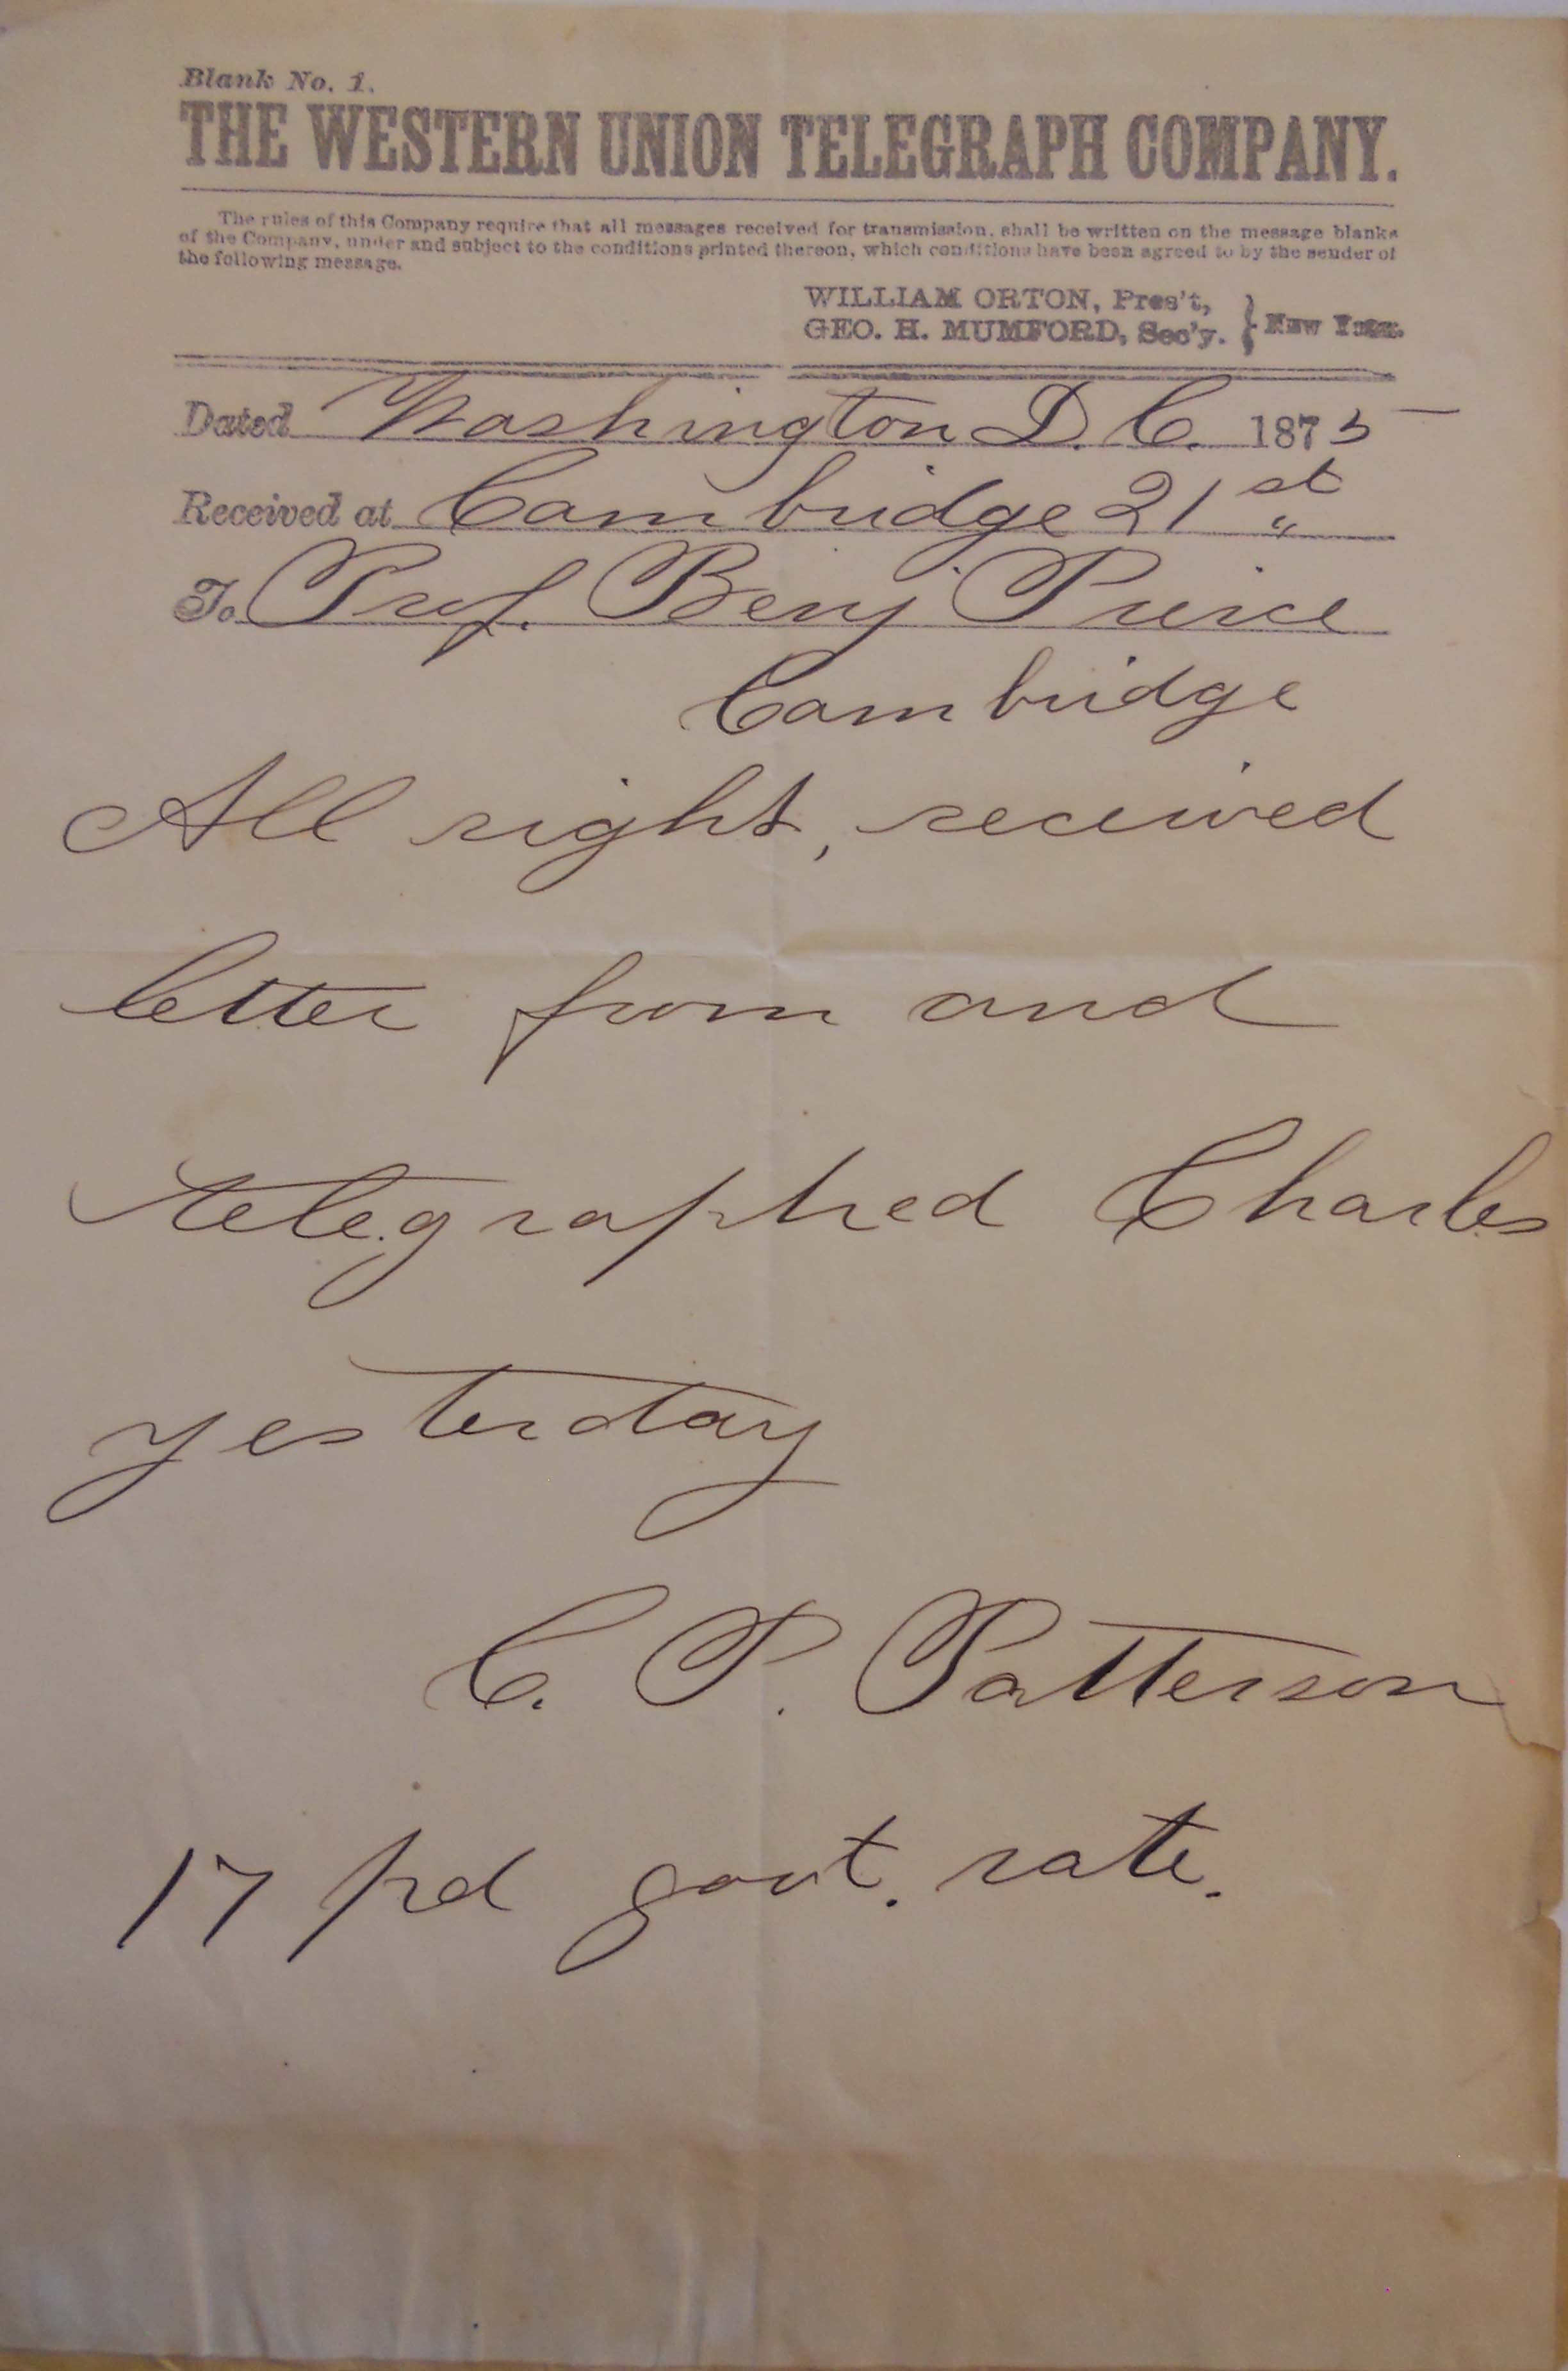 Blank No. 1.
THE WESTERN UNION TELEGRAPH COMPANY.
The rules of this Company require that all messages received for transmission, shall be written on the message blanks
of the Company, under and subject to the conditions printed thereon, which conditions have been agreed to by the sender of
the following message.
WILLIAM ORTON, Pres't,
GEO. H. MUMFORD, Sec'y. } New York.
Dated Washington D. C. 1875
Received at Cambridge 21st "
To Prof. Benj Peirce
Cambridge
All right, received
letter from and
telegraphed Charles
yesterday
C. P. Patterson
17 pd govt. rate.